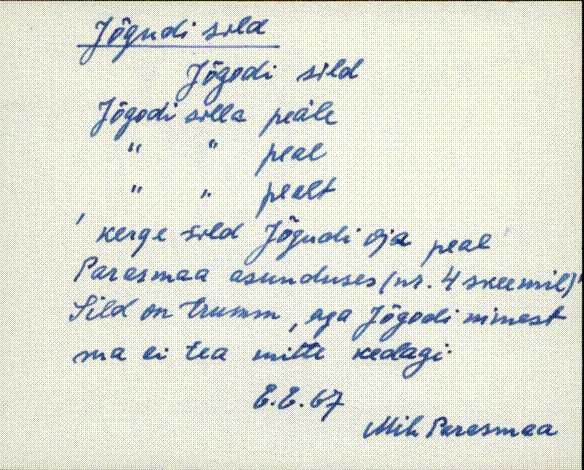 Jõgudi sild
Jõgodi sild
Jõgodi silla peäle
" " peal
" " pealt
' kerge sild Jõgudi oja peal
Parasmaa asunduses (nr. 4 skeemil)'
Sild on trumm, aga Jõgodi nimest
ma ei tea mitte kedagi.
E.E. 67
Mih Parasmaa